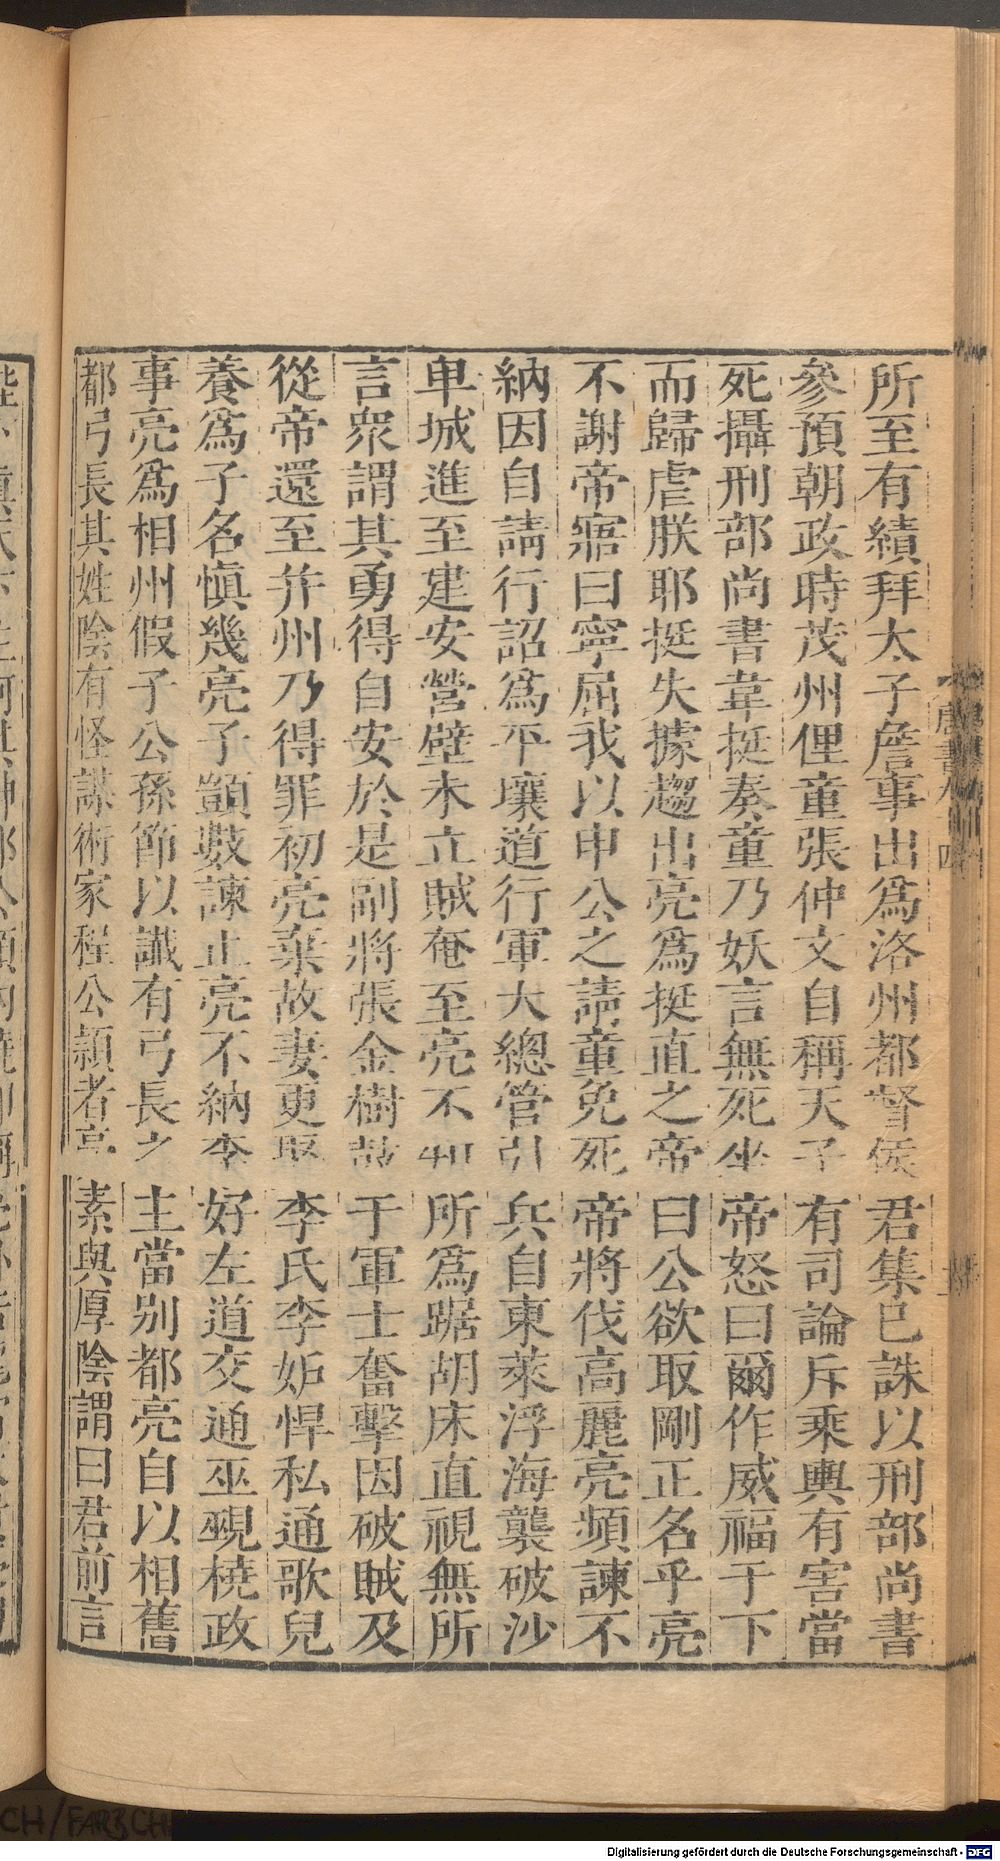 所至有績拜太子詹事出爲洛州都督侯君集已誅以刑部尚書
參預朝政時茂州俚童張仲文自稱天子有司論斥乘輿有害當
死攝刑部尚書韋挺奏童乃妖言無死坐帝怒曰爾作威福于下
而歸虐朕耶挺失據趨出亮爲挺直之帝曰公欲取剛正名乎亮
不謝帝寤曰寧屈我以申公之請童免死帝將伐高麗亮頻諫不
納因自請行詔爲平壤道行軍大總管引兵自東萊浮海襲破沙
卑城進至建安營壁未立賊奄至亮不知所爲踞胡床直視無所
言衆謂其勇得自安於是副將張金樹鼓于軍士奮擊因破賊及
從帝還至并州乃得罪初亮棄故妻更娶李氏李妒悍私通歌兒
養爲子名慎幾亮子顗數諫止亮不納李好左道交通巫覡橈政
事亮爲相州假子公孫節以讖有弓長之主當別都亮自以相舊
都弓長其姓陰有怪謀術家程公穎者亮素與厚陰謂曰君前言
唐書九十四
CH/FARBCH
Digitalisierung gefördert durch die Deutsche Forschungsgemeinschaft - DFG